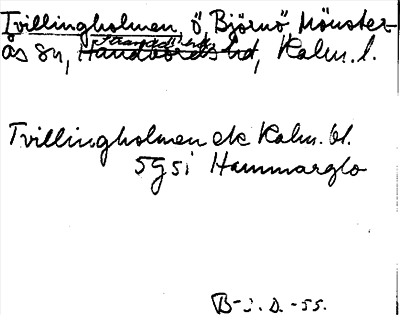 Tvillingholmen, ö, Björnö Mönster-
ås sn, Handbörds hd, Kalm. l.
Tvillingholmen ek Kalm. bl.
5g5i Hammarglo
B-i.D.-55.